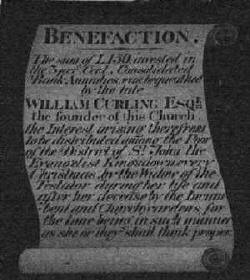 BENEFACTION.
The sum of £150 invested in
the 3 per Cent. Consolidated
Bank Annuities, was bequeathed
by the late
WILLIAM CURLING ESQR.
the founder of this Church
the Interest arising therefrom
to be distributed among the Poor
of the District of St. John the
Evangelist Kingsdown every
Christmas by the Widow of the
Testator during her life and
after her decease by the Incum
bent and Churchwardens for
the time being in such manner
as she or they shall think proper.